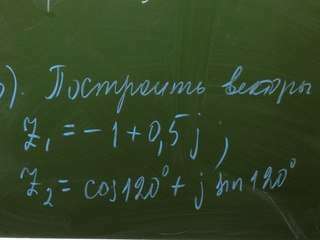 ). Построить векторы
Z₁ = -1 + 0,5 j ;
Z₂ = cos 120° + j sin 120°